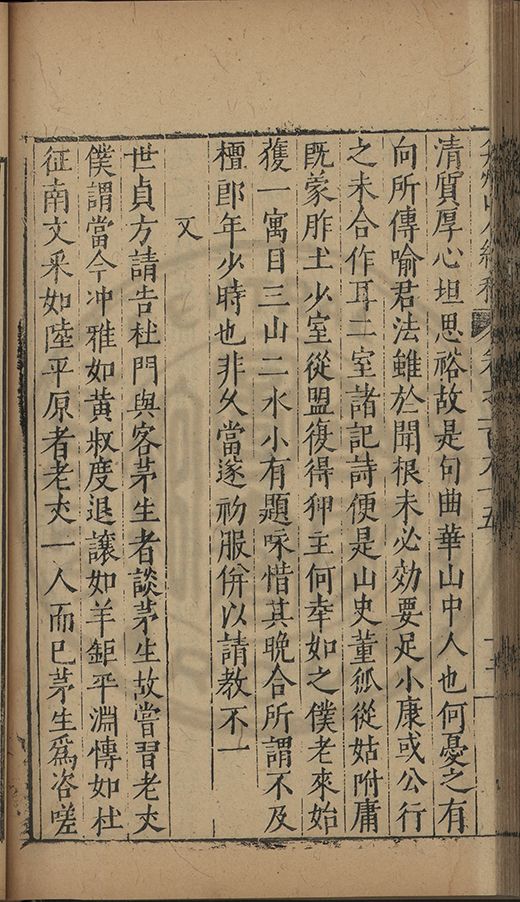 清質厚心坦思裕故是句曲華山中人也何憂之有
向所傳喻君法雖於聞根未必効要足小康或公行
之未合作耳二室諸記詩便是山史董狐從姑附庸
既蒙胙土少室從盟復得狎主何幸如之僕老來始
獲一寓目三山二水小有題咏惜其晚合所謂不及
檀郎年少時也非久當遂初服併以請教不一
又
世貞方請告杜門與客茅生者談茅生故嘗習老丈
僕謂當今冲雅如黃叔度退讓如羊鉅平淵慱如杜
征南文采如陸平原者老丈一人而已茅生爲咨嗟